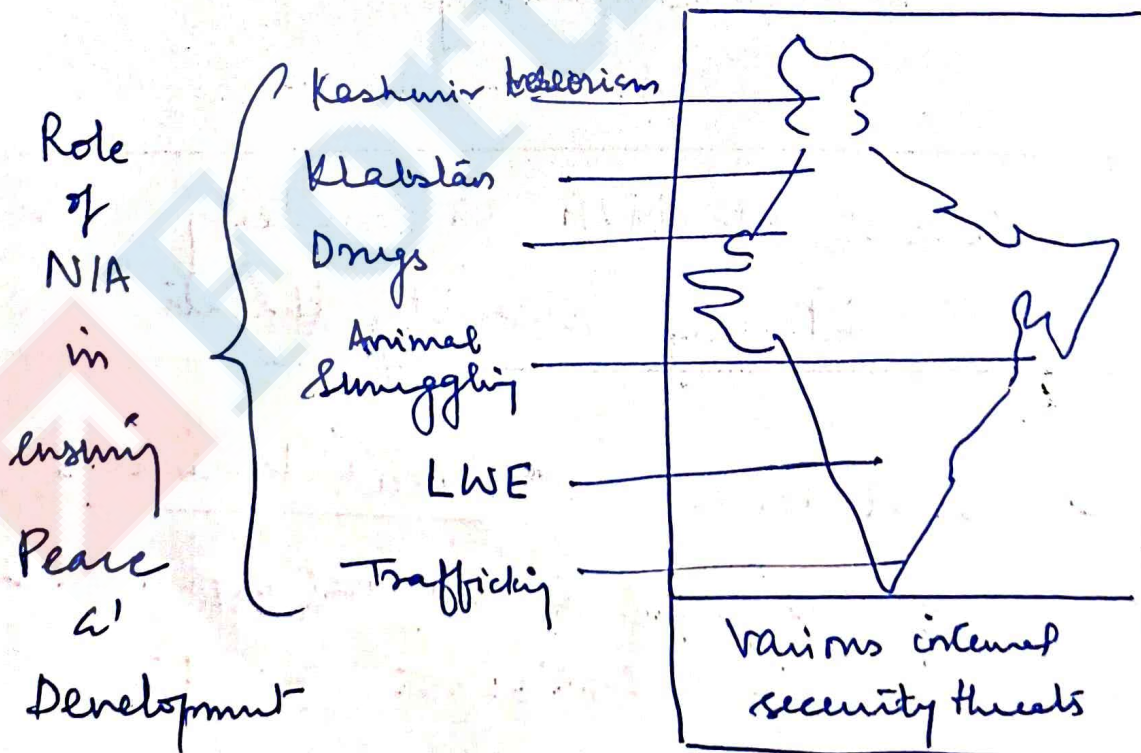 Role
of
NIA
in
ensuring
Peace
&
Development
Kashmir terrorism
Drugs
Animal
Smuggling
LWE
Trafficking
Various internal
security threats